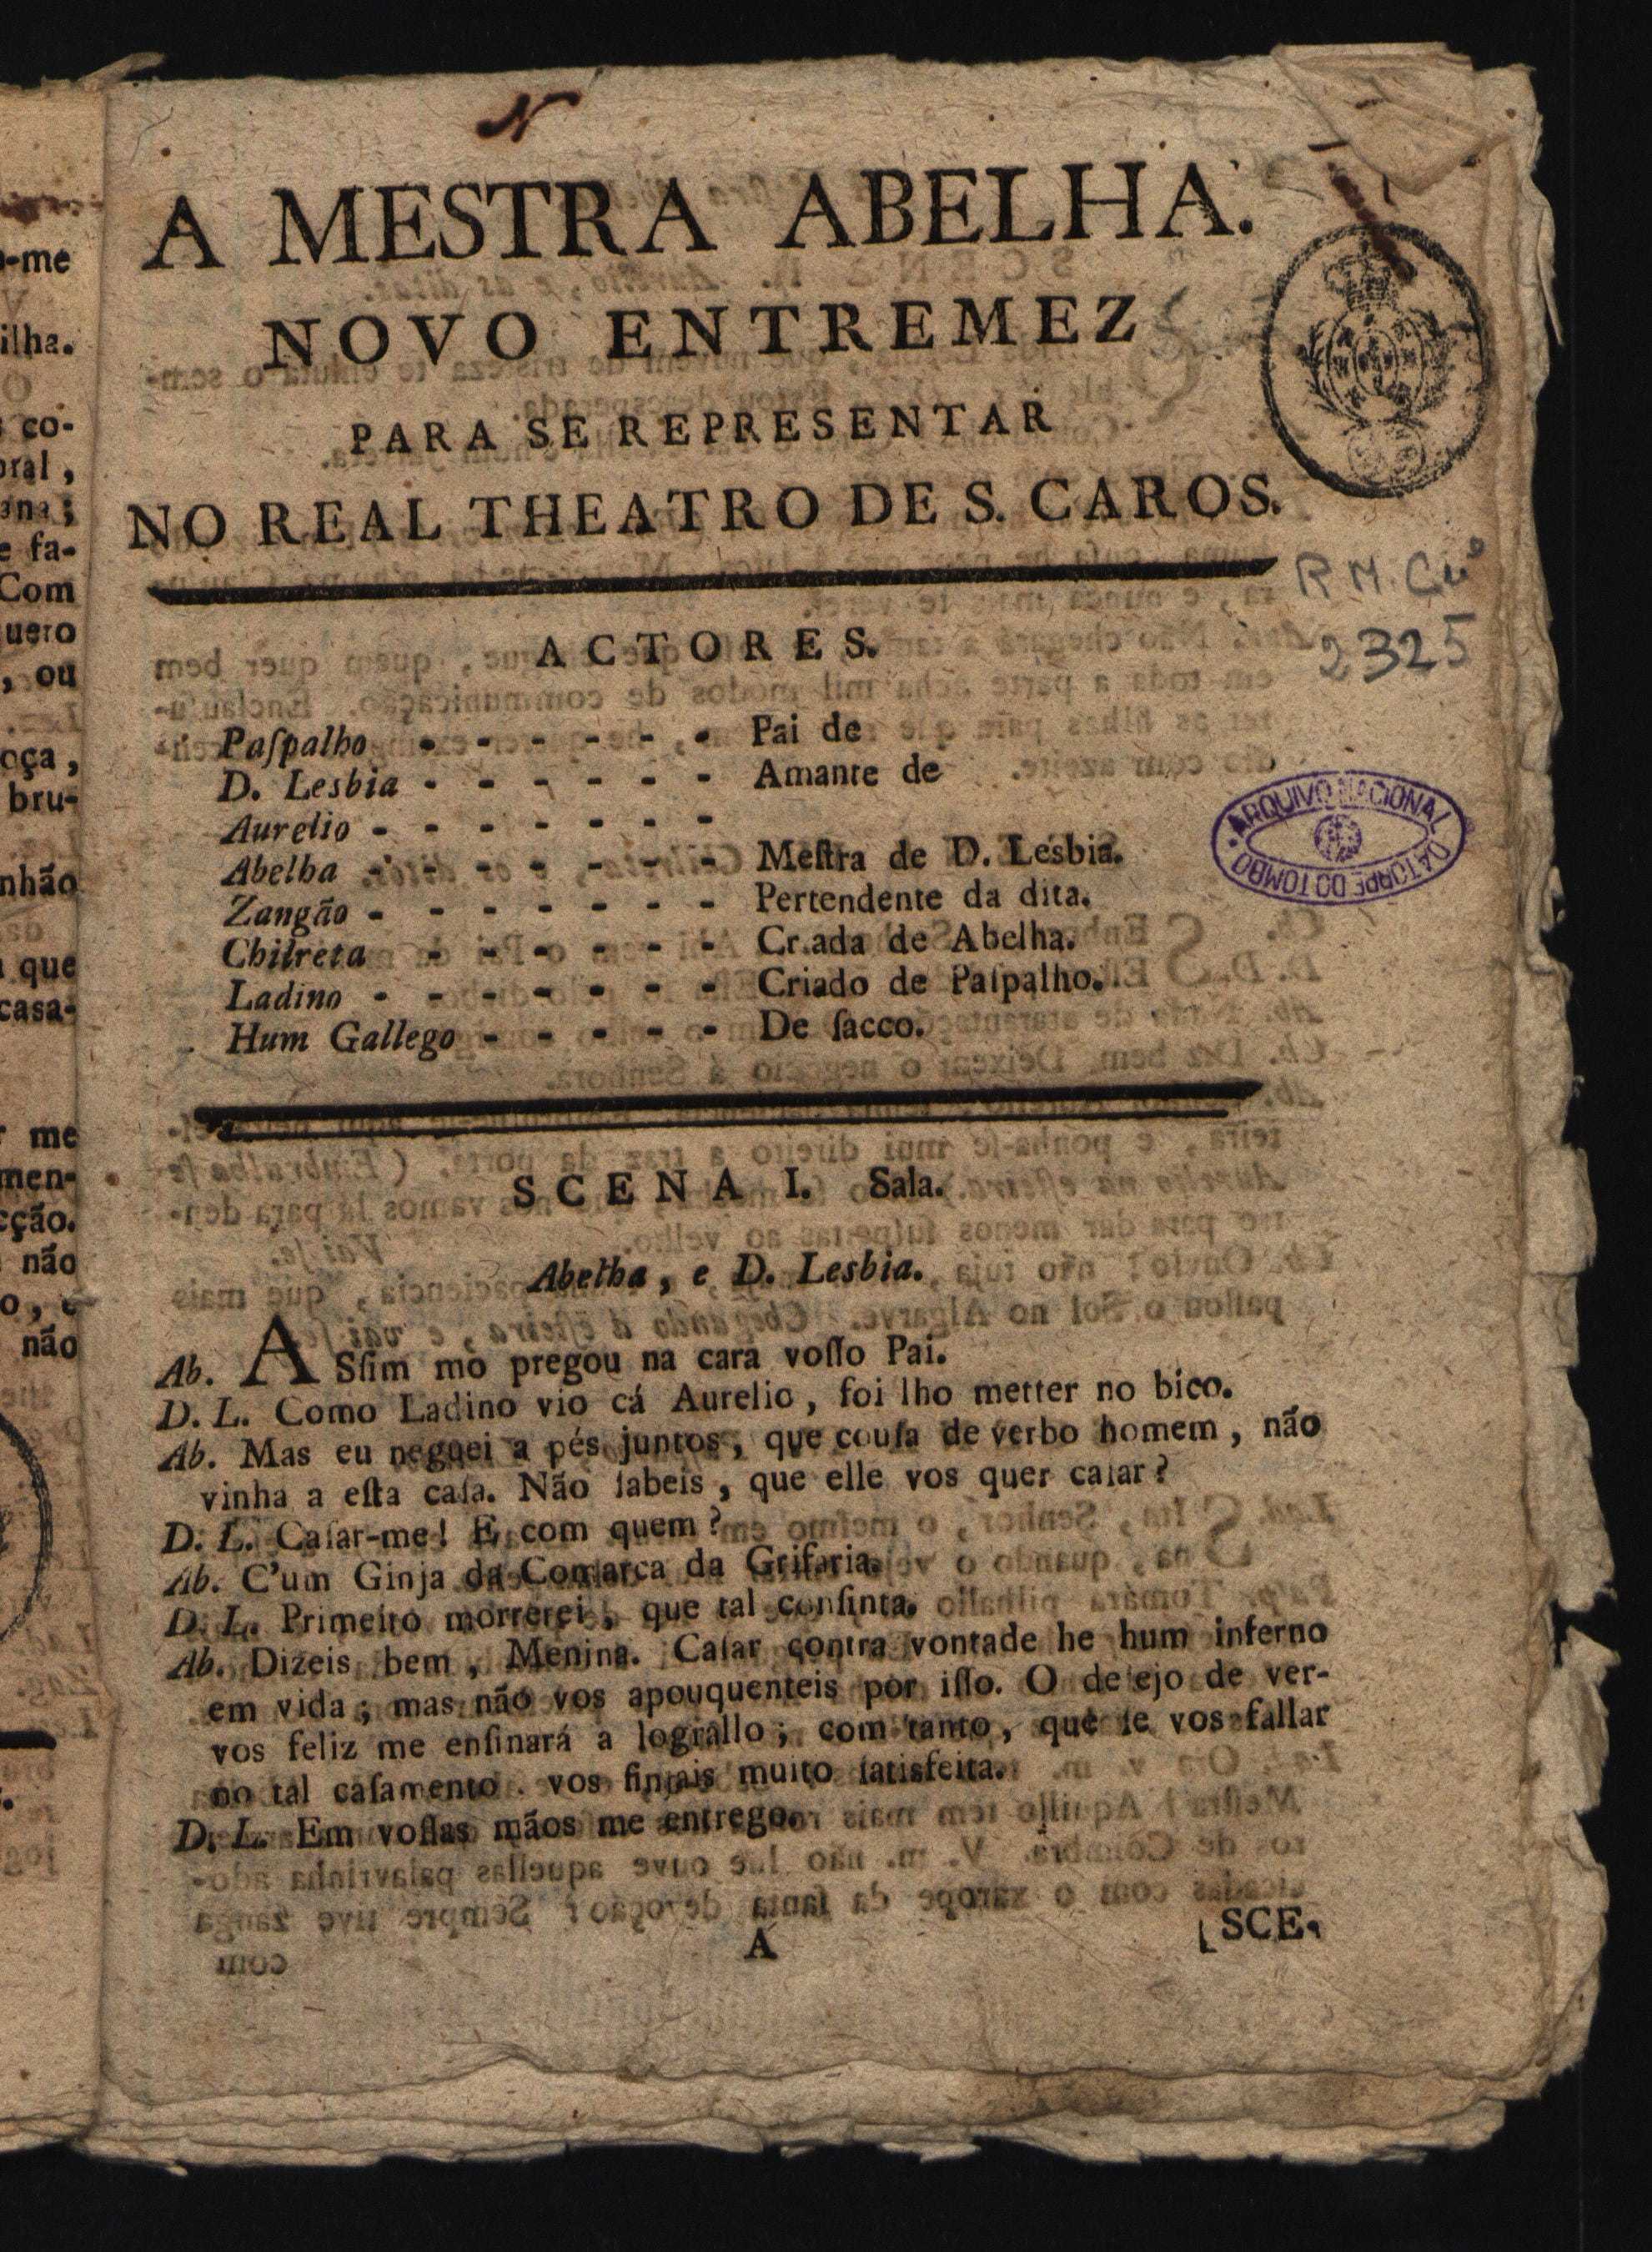 N
A MESTRA ABELHA.
NOVO ENTREMEZ
PARA SE REPRESENTAR
NO REAL THEATRO DE S. CAROS.
R M. Cxª
2325
ACTORES.
Paſpalho - - - - - - - Pai de
D. Lesbia - - - - - - Amante de
Aurelio - - - - - - -
Abelha - - - - - - - Meſtra de D. Lesbia.
Zangão - - - - - - - Pertendente da dita.
Chilreta - - - - - - Cr.ada de Abelha.
Ladino - - - - - - - Criado de Paſpalho.
Hum Gallego - - - - - De ſacco.
ARQUIVO NACIONAL DA TORRE DO TOMBO
SCENA I. Sala.
Abelha, e D. Lesbia.
Ab. ASſim mo pregou na cara voſſo Pai.
D. L. Como Ladino vio cá Aurelio, foi lho metter no bico.
Ab. Mas eu neguei a pés juntos, que couſa de verbo homem, não
vinha a eſta caſa. Não ſabeis, que elle vos quer caſar?
D. L. Caſar-me! E com quem?
Ab. C'um Ginja da Comarca da Griſaria.
D. L. Primeiro morrerei, que tal conſinta.
Ab. Dizeis bem, Menina. Caſar contra vontade he hum inferno
em vida; mas não vos apouquenteis por iſſo. O de ejo de ver-
vos feliz me enſinará a lograllo; com tanto, que ſe vos fallar
no tal caſamento, vos finjais muito ſatisfeita.
D. L. Em voſſas mãos me entrego.
A
SCE-